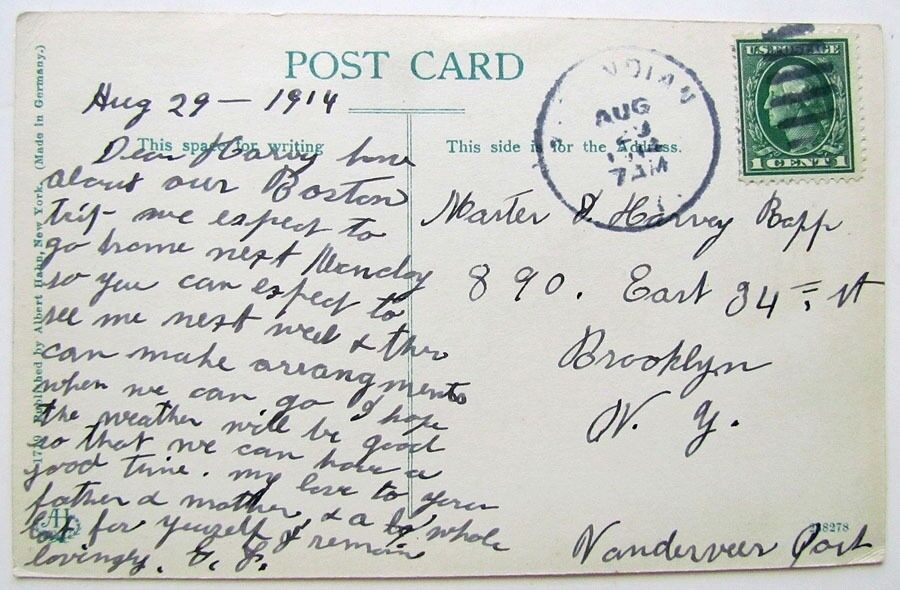 POST CARD
Aug 29 – 1914
This space for writing
This side is for the Address.
Dear Harvy
about our Boston
trip we expect to
go home next Monday
so you can expect to
see me next week &
can make arangments
when we can go I hope
the weather will be good
so that we can have a
good time. my love to your
father & mother & a whole
lot for yourself I remain
lovingly.
AUG
7 AM
U.S. POSTAGE
1 CENT 1
Master Harvey Rapp
890. East 34 = St
Brooklyn
N. Y.
Vanderveer Post
Published by Albert Hahn, New York. (Made in Germany.)
AH